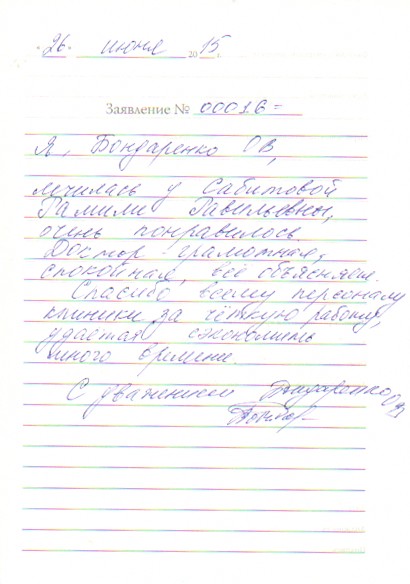 "26" июня 2015 г.
Заявление № 00016=
Я, Бондаренко ОВ,
лечилась у Сабитовой
Рамили Равильевны,
очень понравилось.
Доктор грамотная,
спокойная, всё объясняет.
Спасибо всему персоналу
клиники за чёткую работу,
удаётся сэкономить
много времени.
С уважением Бондаренко ОВ